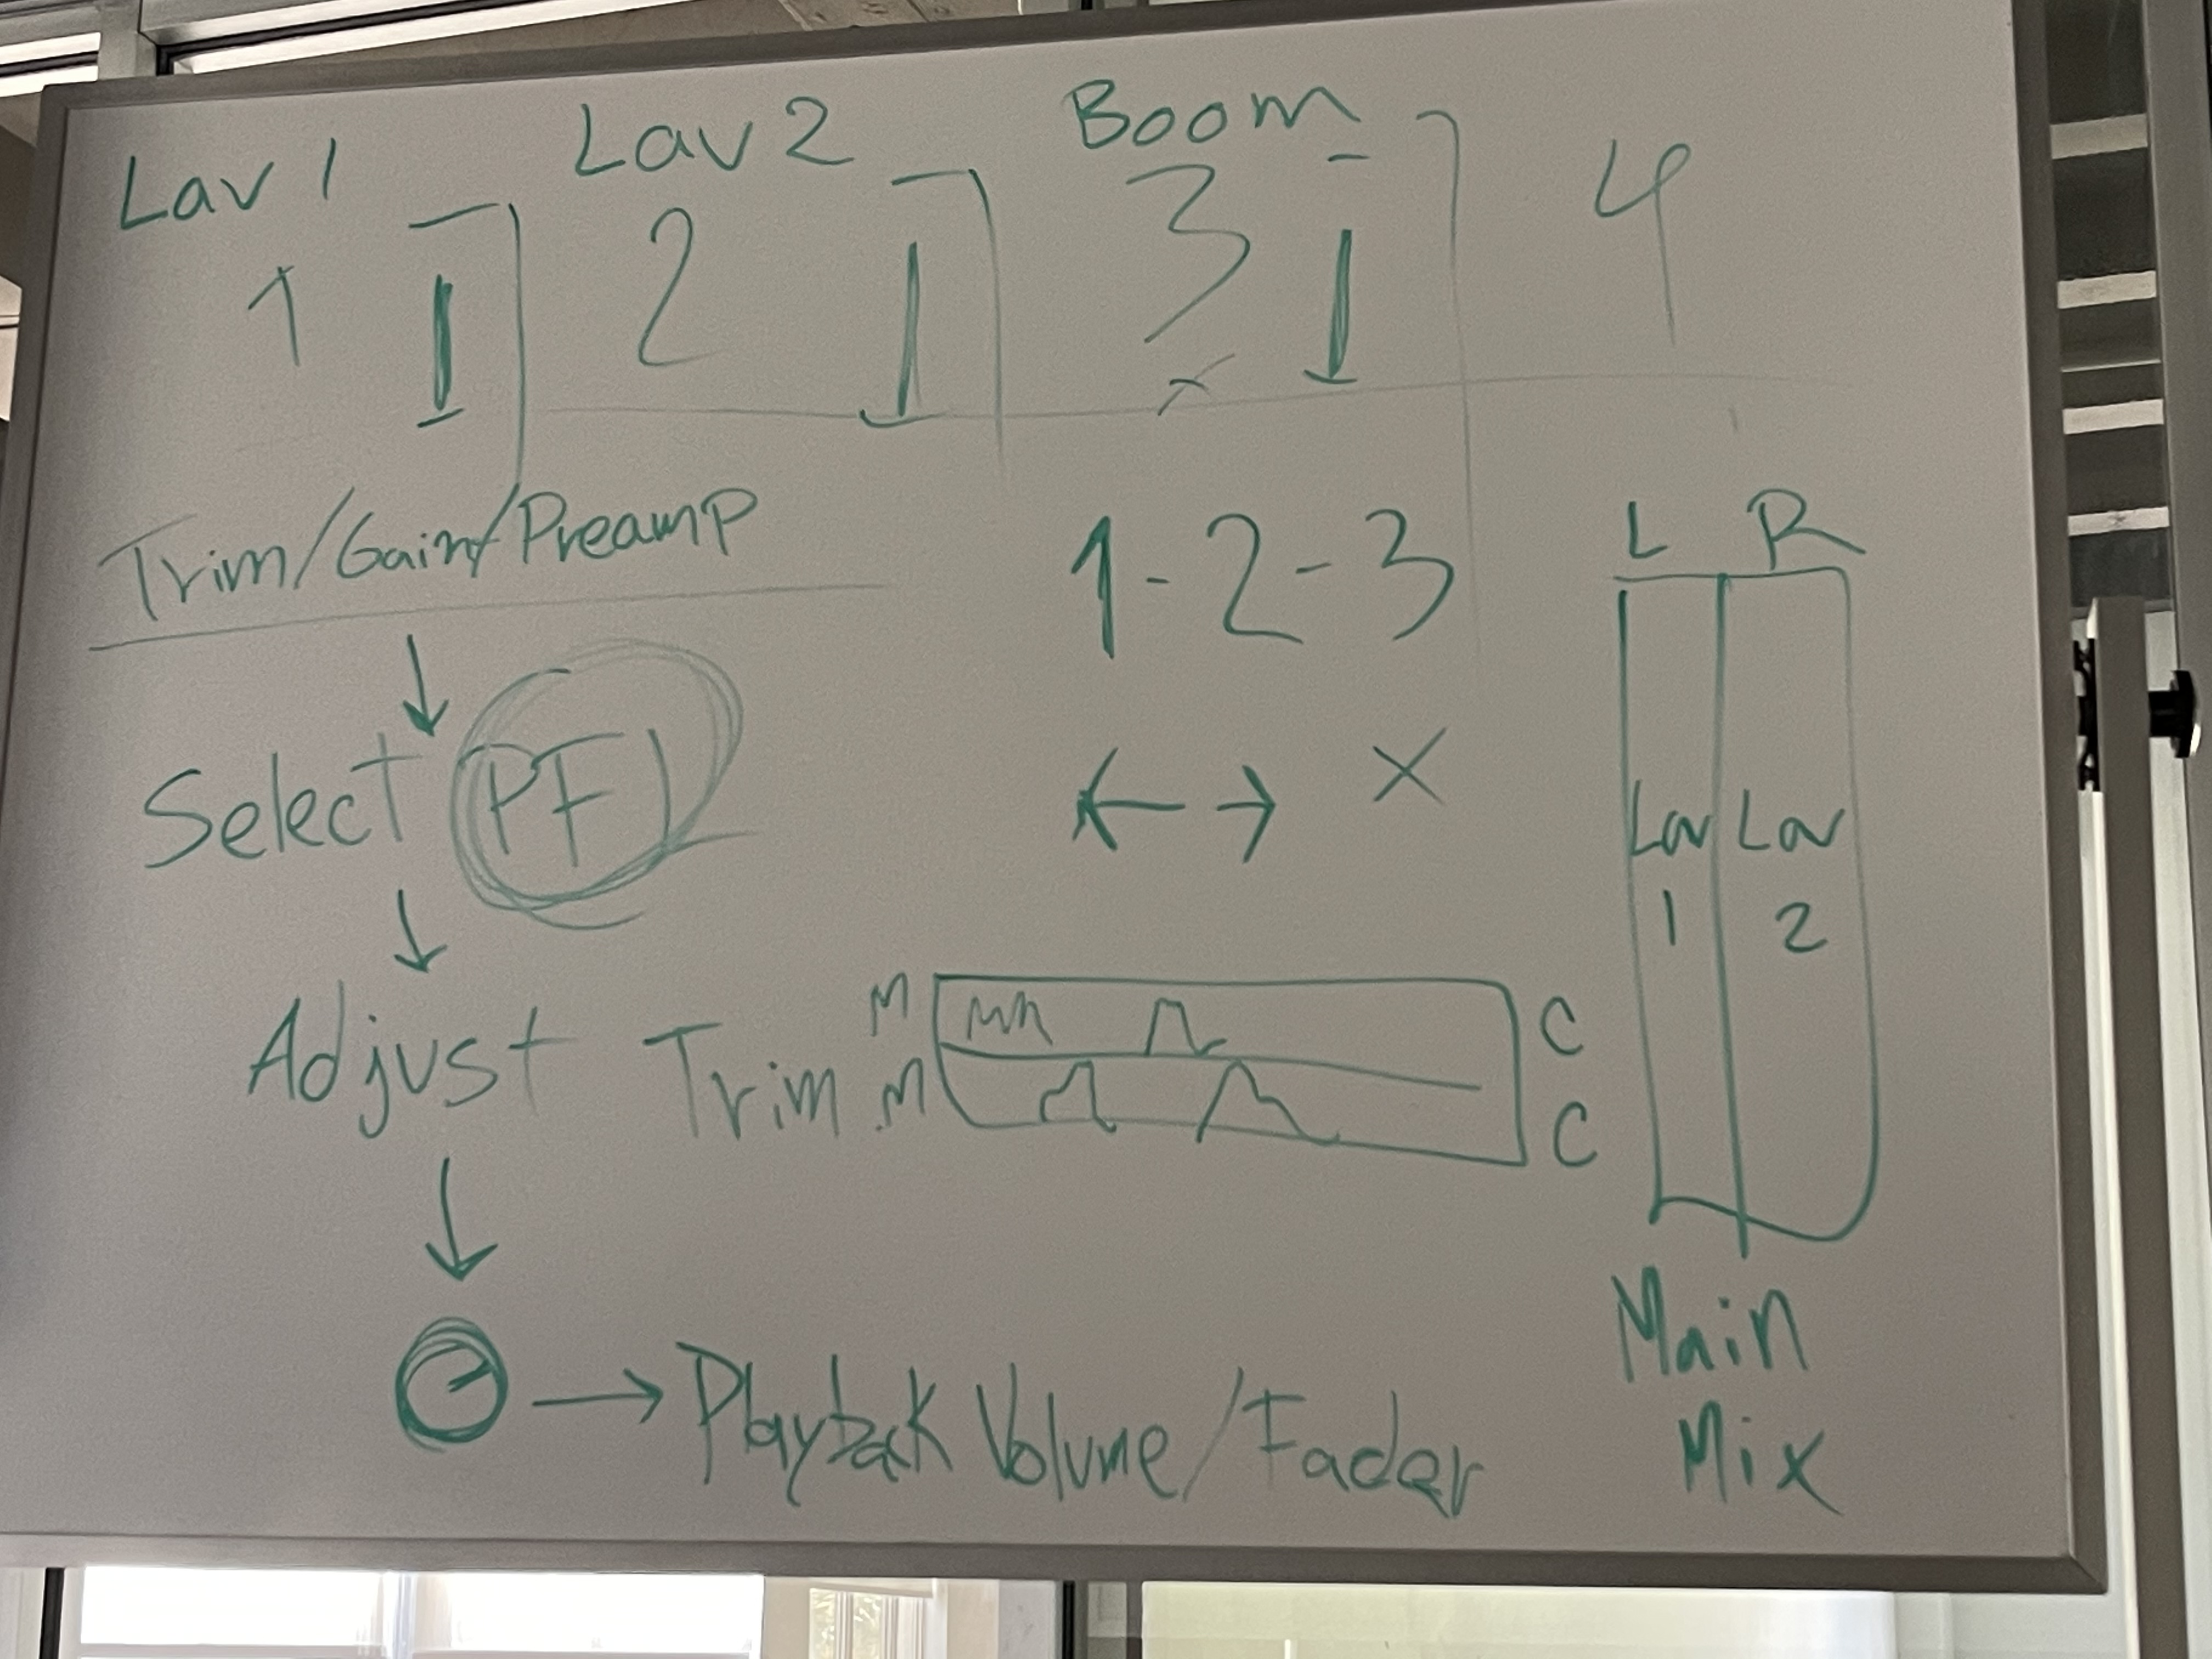 Lav 1 Lav 2 Boom
1 2 3 4
Trim/Gain/Preamp
Select PFL
Adjust Trim
→ Playback Volume/Fader
1-2-3
← → X
M C
M C
L R
Lav Lav
1 2
Main
Mix